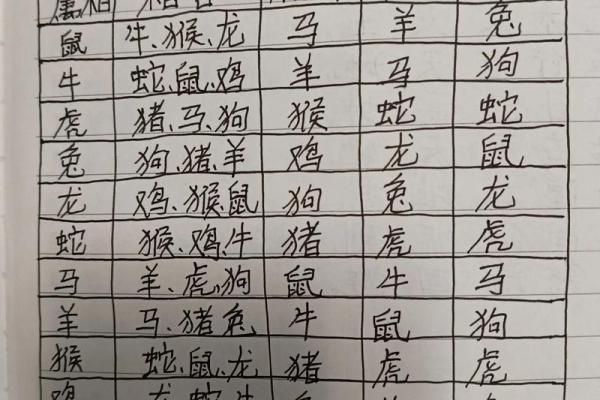 属相
鼠 牛、猴、龙 马 羊 兔
牛 蛇、鼠、鸡 羊 马 狗
虎 猪、马、狗 猴 蛇 蛇
兔 狗、猪、羊 鸡 龙 鼠
龙 鸡、猴、鼠 狗 兔 龙
蛇 猴、鸡、牛 猪 虎 虎
马 羊、虎、狗 鼠 牛 马
羊 马、猪、兔 牛 鼠 狗
猴 蛇、鼠、龙 猪 虎 虎
鸡 龙、蛇、牛